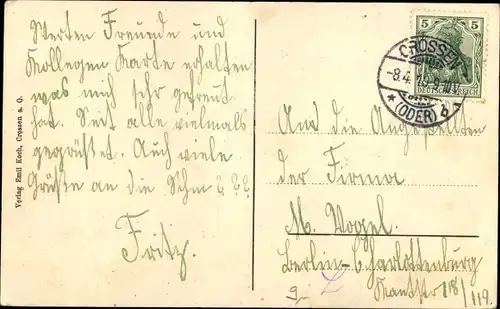 Werten Freunde und
Kollegen Karte erhalten
was mich sehr gefreut
hat. Seit alle vielmals
gegrüßt. Auch viele
Grüße an die Schm ? ? ?
Fritz.
Verlag Emil Koch, Crossen a. O.
5 5
DEUTSCHES REICH
CROSSEN
-8.4.
* (ODER) b
An die Angestellten
der Firma
M. Vogel.
Berlin-Charlottenburg
Kantstr 118/119.